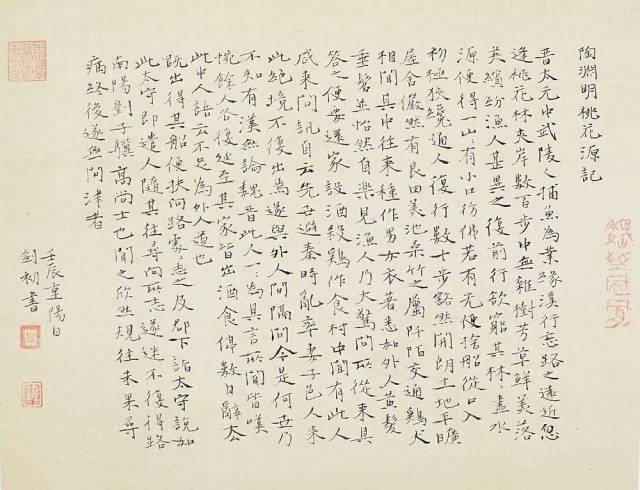 陶淵明桃花源記
晉太元中武陵人捕魚為業緣溪行忘路之遠近忽
逢桃花林夾岸數百步中無雜樹芳草鮮美落
英繽紛漁人甚異之復前行欲窮其林盡水
源便得一山有小口彷彿若有光便捨船從口入
初極狹纔通人復行數十步豁然開朗土地平曠
屋舍儼然有良田美池桑竹之屬阡陌交通鷄犬
相聞其中往來種作男女衣著悉如外人黃髮
垂髫並怡然自樂見漁人乃大驚問所從來具
答之便要還家設酒殺鷄作食村中聞有此人
咸來問訊自云先世避秦時亂率妻子邑人來
此絕境不復出焉遂與外人間隔問今是何世乃
不知有漢無論魏晉此人一一為具言所聞皆嘆
惋餘人各復延至其家皆出酒食停數日辭去
此中人語云不足為外人道也
既出得其船便扶向路處處志之及郡下詣太守說如
此太守即遣人隨其往尋向所志遂迷不復得路
南陽劉子驥高尚士也聞之欣然規往未果尋
病終後遂無問津者
壬辰重陽日
劍初書